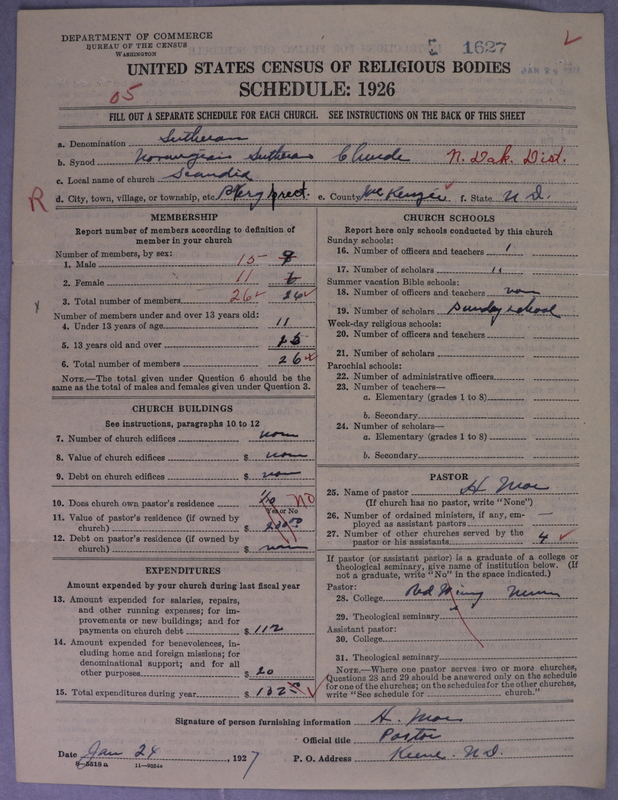 DEPARTMENT OF COMMERCE
BUREAU OF THE CENSUS
WASHINGTON
1627
UNITED STATES CENSUS OF RELIGIOUS BODIES
SCHEDULE: 1926
05
FILL OUT A SEPARATE SCHEDULE FOR EACH CHURCH. SEE INSTRUCTIONS ON THE BACK OF THIS SHEET
a. Denomination Lutheran
b. Synod Norwegian Lutheran Church N. Dak. Dist.
c. Local name of church Scandia
R d. City, town, village, or township, etc. prect. e. County McKenzie f. State N D.
MEMBERSHIP
Report number of members according to definition of
member in your church
Number of members, by sex:
1. Male 15
2. Female 11 6
3. Total number of members 26 26
Number of members under and over 13 years old:
4. Under 13 years of age 11
5. 13 years old and over 15
6. Total number of members 26
NOTE.—The total given under Question 6 should be the
same as the total of males and females given under Question 3.
CHURCH BUILDINGS
See instructions, paragraphs 10 to 12
7. Number of church edifices non
8. Value of church edifices $ non
9. Debt on church edifices $ non
10. Does church own pastor's residence No
Yes or No
11. Value of pastor's residence (if owned by
church) $
12. Debt on pastor's residence (if owned by
church) $ non
EXPENDITURES
Amount expended by your church during last fiscal year
13. Amount expended for salaries, repairs,
and other running expenses; for im-
provements or new buildings; and for
payments on church debt $ 112
14. Amount expended for benevolences, in-
cluding home and foreign missions; for
denominational support; and for all
other purposes $ 20
15. Total expenditures during year $ 132
CHURCH SCHOOLS
Report here only schools conducted by this church
Sunday schools:
16. Number of officers and teachers 1
17. Number of scholars 11
Summer vacation Bible schools:
18. Number of officers and teachers non
19. Number of scholars Sunday school
Week-day religious schools:
20. Number of officers and teachers
21. Number of scholars
Parochial schools:
22. Number of administrative officers
23. Number of teachers—
a. Elementary (grades 1 to 8)
b. Secondary
24. Number of scholars—
a. Elementary (grades 1 to 8)
b. Secondary
PASTOR
25. Name of pastor H Moe
(If church has no pastor, write "None")
26. Number of ordained ministers, if any, em-
ployed as assistant pastors —
27. Number of other churches served by the
pastor or his assistants 4
If pastor (or assistant pastor) is a graduate of a college or
theological seminary, give name of institution below. (If
not a graduate, write "No" in the space indicated.)
Pastor:
28. College Red Wing Minn
29. Theological seminary
Assistant pastor:
30. College
31. Theological seminary
NOTE.—Where one pastor serves two or more churches,
Questions 28 and 29 should be answered only on the schedule
for one of the churches; on the schedules for the other churches,
write "See schedule for church."
Signature of person furnishing information H. Moe
Official title Pastor
Date Jan 24, 1927 P. O. Address Keene N.D.
8—5518 a 11—9224